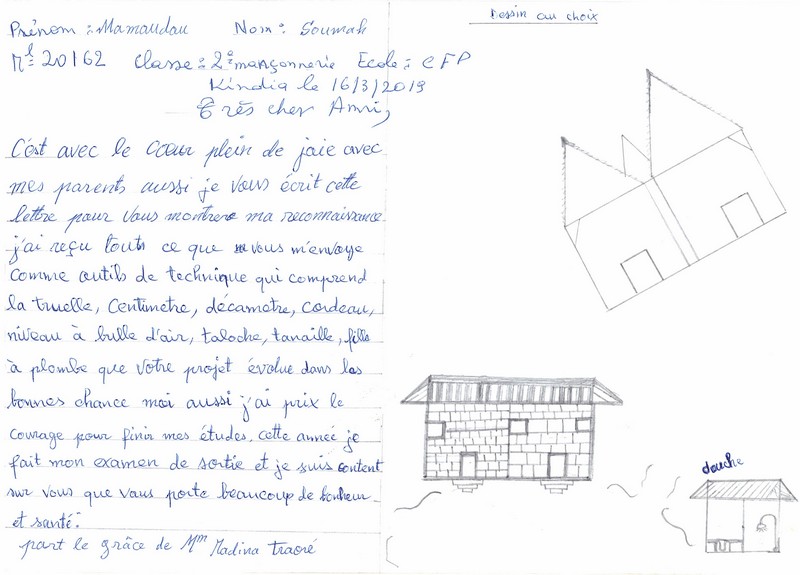 Prénom : Mamaudau Nom : Soumah
Ml = 20162 Classe : 2e mançonnerie Ecole : CFP
Kindia le 16/3/2019
Très cher Amri,
C'est avec le Cœur plein de jaie avec
mes parents aussi je vous écrit cette
lettre pour vous montrere ma reconnaissance
j'ai reçu touts ce que vous m'envoye
comme outils de technique qui comprend
la truelle, Centimetre, décametre, cordeau,
niveau à bulle d'air, taloche, tanaille, fills
à plombe que votre projet évolue dans les
bonnes chance moi aussi j'ai prix le
courage pour finir mes études, cette année je
fait mon examen de sortie et je suis content
sur vous que vous porte beaucoup de bonheur
et santé.
part le grâce de Mm Madina Traoré
Dessin au choix
douche